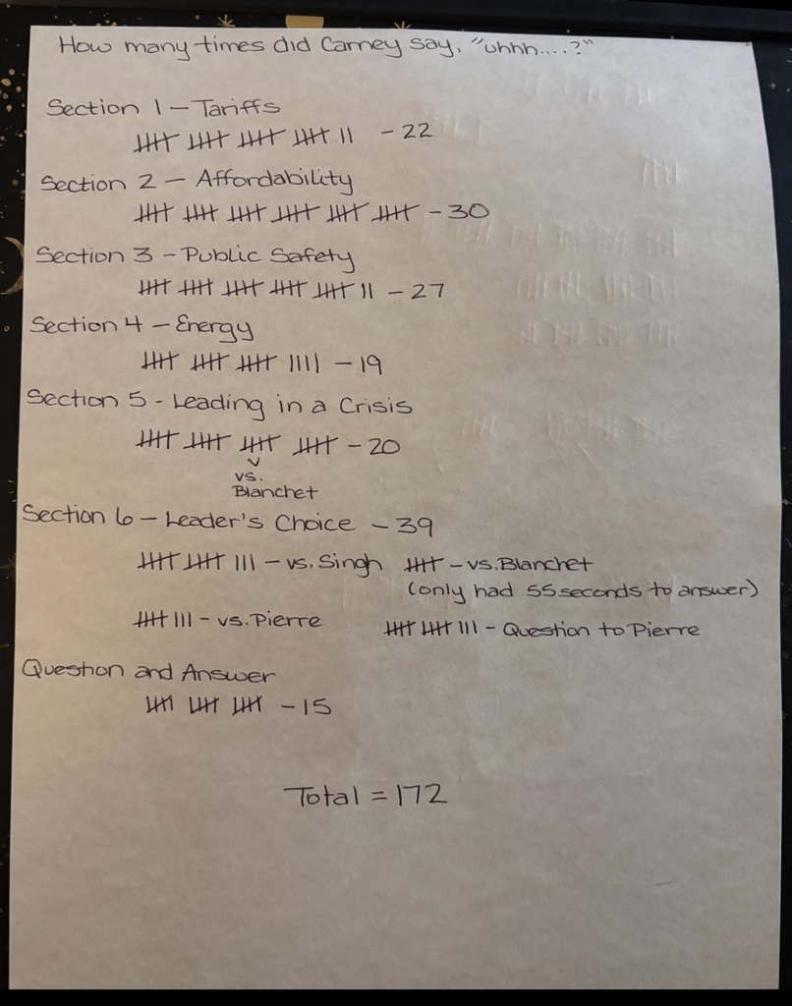 How many times did Carney say, "uhhh....?"
Section 1 - Tariffs
卌 卌 卌 卌 || - 22
Section 2 - Affordability
卌 卌 卌 卌 卌 卌 - 30
Section 3 - Public Safety
卌 卌 卌 卌 卌 || - 27
Section 4 - Energy
卌 卌 卌 |||| - 19
Section 5 - Leading in a Crisis
卌 卌 卌 卌 - 20
vs.
Blanchet
Section 6 - Leader's Choice - 39
卌 卌 ||| - vs. Singh 卌 - vs. Blanchet
(only had 55 seconds to answer)
卌 ||| - vs. Pierre 卌 卌 ||| - Question to Pierre
Question and Answer
卌 卌 卌 - 15
Total = 172